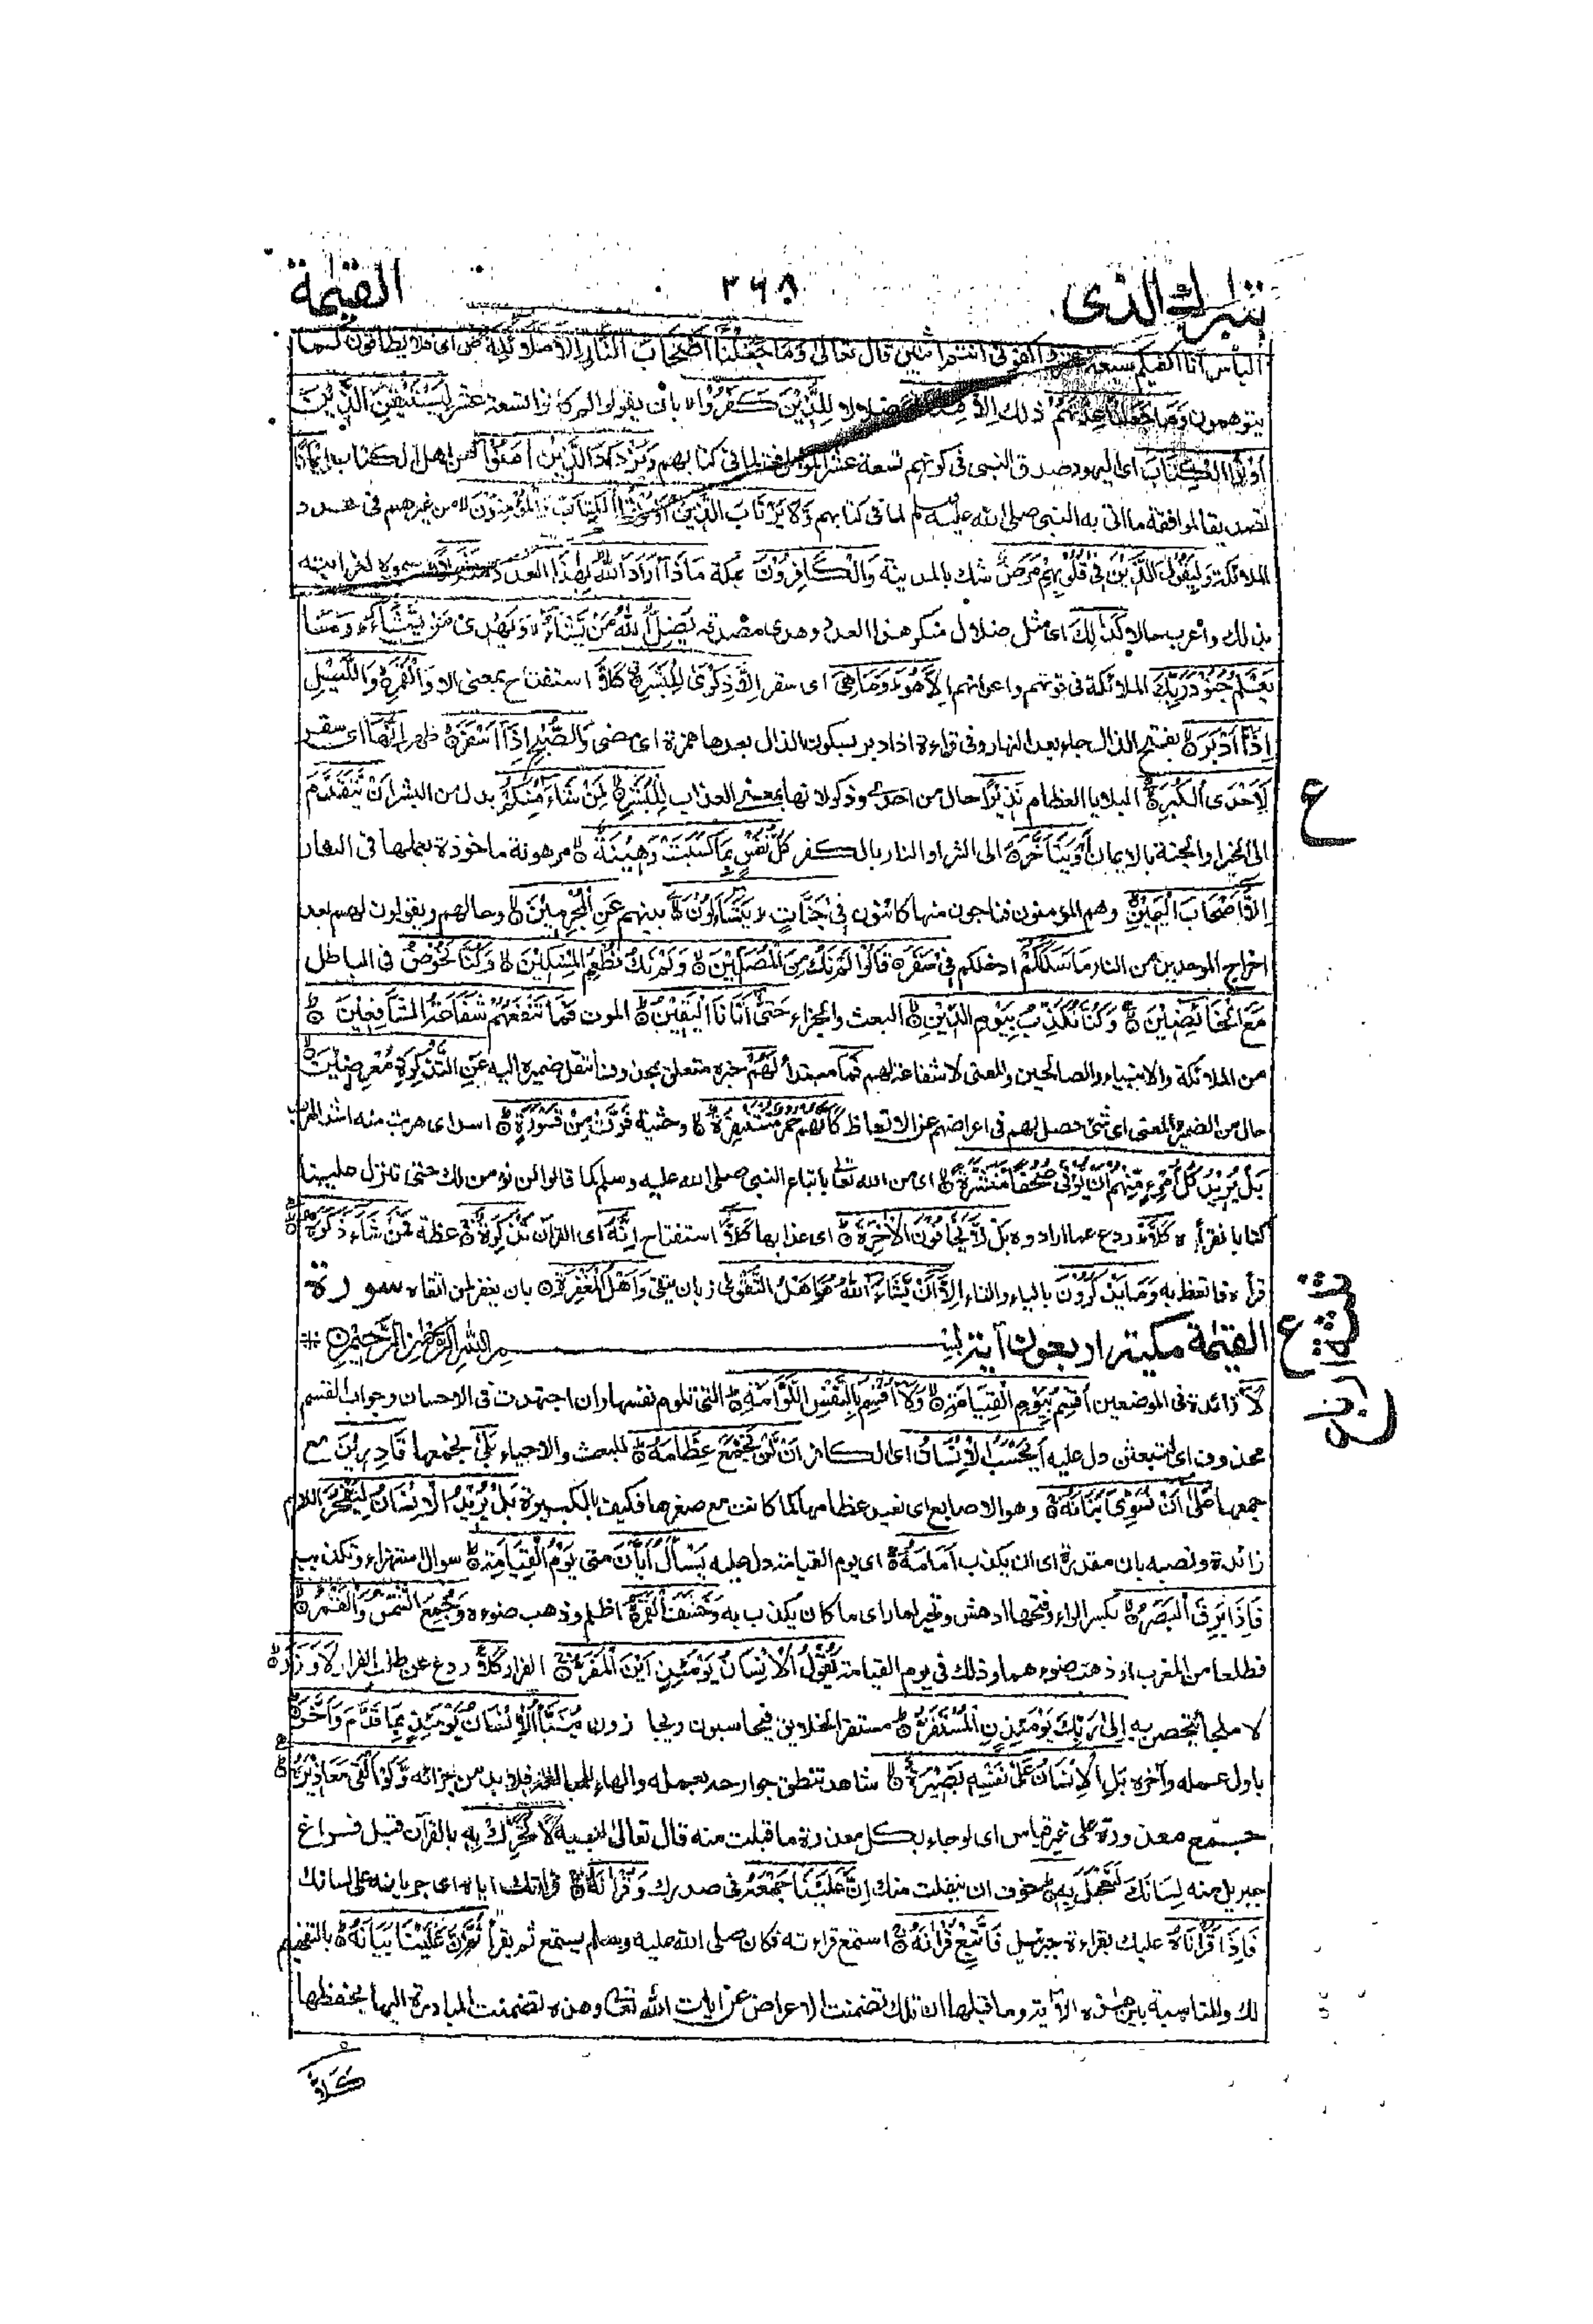 تبٰرك الذى ٢٦٨ القيٰمة
الباس انا اكفيكم سبعة عشر واكفونى انتم اثنين قال تعالى وَمَا جَعَلْنَا أَصْحَابَ النَّارِ إِلَّا مَلَائِكَةً ص اى فلا يطاقون كما
يتوهمون وَمَا جَعَلْنَا عِدَّتَهُمْ ذلك إِلَّا فِتْنَةً ضلالا لِلَّذِيْنَ كَفَرُوْا لا بان يقولوا لم كانوا تسعة عشر لِيَسْتَيْقِنَ الَّذِيْنَ
أُوْتُوا الْكِتَابَ اى اليهود صدق النبى فى كونهم تسعة عشر الموافق لما فى كتابهم وَيَزْدَادَ الَّذِيْنَ اٰمَنُوْا من اهل الكتاب إِيْمَانًا
تصديقا لموافقة ما اتى به النبى صلى الله عليه وسلم لما فى كتابهم وَلَا يَرْتَابَ الَّذِيْنَ أُوْتُوا الْكِتَابَ وَالْمُؤْمِنُوْنَ لا من غيرهم فى عدد
الملائكة وَلِيَقُوْلَ الَّذِيْنَ فِيْ قُلُوْبِهِمْ مَرَضٌ شك بالمدينة وَالْكَافِرُوْنَ بمكة مَاذَا أَرَادَ اللّٰهُ بِهٰذَا العدد مَثَلًا سموه لغرابته
بذلك واعرب حالا كَذٰلِكَ اى مثل ضلال منكر هذا العدد وهدى مصدقه يُضِلُّ اللّٰهُ مَنْ يَّشَاءُ وَيَهْدِىْ مَنْ يَّشَاءُ وَمَا
يَعْلَمُ جُنُوْدَ رَبِّكَ الملائكة فى قوتهم واعوانهم إِلَّا هُوَ وَمَا هِىَ اى سقر إِلَّا ذِكْرٰى لِلْبَشَرِ كَلَّا استفتاح بمعنى الا وَالْقَمَرِ وَاللَّيْلِ
إِذَا أَدْبَرَ بفتح الذال جاء بعد النهار وفى قراءة اذ ادبر بسكون الذال بعدها همزة اى مضى وَالصُّبْحِ إِذَا أَسْفَرَ ظهر إِنَّهَا اى سقر
لَإِحْدَى الْكُبَرِ البلايا العظام نَذِيْرًا حال من احدى وذكر لانها بمعنى العذاب لِلْبَشَرِ لِمَنْ شَاءَ مِنْكُمْ بدل من البشر أَنْ يَّتَقَدَّمَ
الى الخير او الجنة بالايمان أَوْ يَتَأَخَّرَ الى الشر او النار بالكفر كُلُّ نَفْسٍ بِمَا كَسَبَتْ رَهِيْنَةٌ مرهونة ماخوذة بعملها فى النار
إِلَّا أَصْحَابَ الْيَمِيْنِ وهم المؤمنون فناجون منها كائنون فِيْ جَنَّاتٍ يَتَسَاءَلُوْنَ بينهم عَنِ الْمُجْرِمِيْنَ وحالهم ويقولون لهم بعد
اخراج الموحدين من النار مَا سَلَكَكُمْ ادخلكم فِيْ سَقَرَ قَالُوْا لَمْ نَكُ مِنَ الْمُصَلِّيْنَ وَلَمْ نَكُ نُطْعِمُ الْمِسْكِيْنَ وَكُنَّا نَخُوْضُ فى الباطل
مَعَ الْخَائِضِيْنَ وَكُنَّا نُكَذِّبُ بِيَوْمِ الدِّيْنِ البعث والجزاء حَتّٰى أَتَانَا الْيَقِيْنُ الموت فَمَا تَنْفَعُهُمْ شَفَاعَةُ الشَّافِعِيْنَ
من الملائكة والانبياء والصالحين والمعنى لا شفاعة لهم فَمَا مبتدأ لَهُمْ خبره متعلق بمحذوف انتقل ضميره اليه عَنِ التَّذْكِرَةِ مُعْرِضِيْنَ
حال من الضمير والمعنى اى شئ حصل لهم فى اعراضهم عن الاتعاظ كَأَنَّهُمْ حُمُرٌ مُّسْتَنْفِرَةٌ وحشية فَرَّتْ مِنْ قَسْوَرَةٍ اسد اى هربت منه اشد الهرب
بَلْ يُرِيْدُ كُلُّ امْرِئٍ مِّنْهُمْ أَنْ يُّؤْتٰى صُحُفًا مُّنَشَّرَةً اى من الله تعالى باتباع النبى صلى الله عليه وسلم كما قالوا لن نؤمن لك حتى تنزل علينا
كتابا نقرأه كَلَّا ردع عما ارادوه بَلْ لَا يَخَافُوْنَ الْاٰخِرَةَ اى عذابها كَلَّا استفتاح إِنَّهُ اى القرآن تَذْكِرَةٌ عظة فَمَنْ شَاءَ ذَكَرَهُ
قرأه فاتعظ به وَمَا يَذْكُرُوْنَ بالياء والتاء إِلَّا أَنْ يَّشَاءَ اللّٰهُ هُوَ أَهْلُ التَّقْوٰى بان يتقى وَأَهْلُ الْمَغْفِرَةِ بان يغفر لمن اتقاه سورة
القيٰمة مكية اربعون آية بِسْمِ اللّٰهِ الرَّحْمٰنِ الرَّحِيْمِ
لَا زائدة فى الموضعين أُقْسِمُ بِيَوْمِ الْقِيَامَةِ وَلَا أُقْسِمُ بِالنَّفْسِ اللَّوَّامَةِ التى تلوم نفسها وان اجتهدت فى الاحسان وجواب القسم
محذوف اى لتبعثن دل عليه أَيَحْسَبُ الْإِنْسَانُ اى الكافر أَنْ لَّنْ نَجْمَعَ عِظَامَهُ للبعث والاحياء بَلٰى نجمعها قَادِرِيْنَ مع
جمعها عَلٰى أَنْ نُّسَوِّىَ بَنَانَهُ وهو الاصابع اى نعيد عظامها كما كانت مع صغرها فكيف بالكبيرة بَلْ يُرِيْدُ الْإِنْسَانُ لِيَفْجُرَ اللام
زائدة ونصبه بان مقدرة اى ان يكذب أَمَامَهُ اى يوم القيامة دل عليه يَسْأَلُ أَيَّانَ متى يَوْمُ الْقِيَامَةِ سوال استهزاء وتكذيب
فَإِذَا بَرِقَ الْبَصَرُ بكسر الراء وفتحها ادهش وتحير لما راى ما كان يكذب به وَخَسَفَ الْقَمَرُ اظلم وذهب ضوءه وَجُمِعَ الشَّمْسُ وَالْقَمَرُ
فطلعا من المغرب او ذهب ضوءهما وذلك فى يوم القيامة يَقُوْلُ الْإِنْسَانُ يَوْمَئِذٍ أَيْنَ الْمَفَرُّ الفرار كَلَّا ردع عن طلب الفرار لَا وَزَرَ
لا ملجأ يتحصن به إِلٰى رَبِّكَ يَوْمَئِذٍ الْمُسْتَقَرُّ مستقر الخلائق فيحاسبون ويجازون يُنَبَّأُ الْإِنْسَانُ يَوْمَئِذٍ بِمَا قَدَّمَ وَأَخَّرَ
باول عمله وآخره بَلِ الْإِنْسَانُ عَلٰى نَفْسِهِ بَصِيْرَةٌ شاهد تنطق جوارحه بعمله والهاء للمبالغة فلابد من جزائه وَّلَوْ أَلْقٰى مَعَاذِيْرَهُ
جمع معذرة على غير قياس اى لو جاء بكل معذرة ما قبلت منه قال تعالى لنبيه لَا تُحَرِّكْ بِهِ بالقرآن قبل فراغ
جبريل منه لِسَانَكَ لِتَعْجَلَ بِهِ خوف ان ينفلت منك إِنَّ عَلَيْنَا جَمْعَهُ فى صدرك وَقُرْاٰنَهُ قراءتك اياه اى جريانه على لسانك
فَإِذَا قَرَأْنَاهُ عليك بقراءة جبرئيل فَاتَّبِعْ قُرْاٰنَهُ استمع قراءته فكان صلى الله عليه وسلم يستمع ثم يقرأ ثُمَّ إِنَّ عَلَيْنَا بَيَانَهُ بالتفهيم
لك والمناسبة بين هذه الآية وما قبلها ان تلك تضمنت الاعراض عن آيات الله تعالى وهذه تضمنت المبادرة اليها بحفظها
كَلَّا
ع
ع